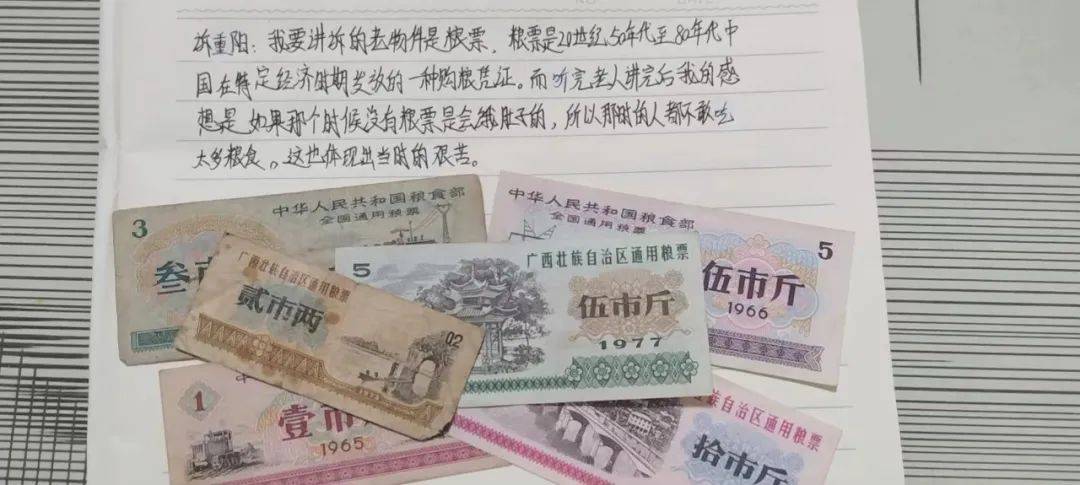 重阳：我要讲诉的老物件是粮票，粮票是20世纪50年代至80年代中
国在特定经济时期发放的一种购粮凭证。而听完老人讲完后我的感
想是如果那个时候没有粮票是会饿肚子的，所以那时的人都不敢吃
太多粮食。这也体现出当时的艰苦。
3
中华人民共和国粮食部
全国通用粮票
叁市
中华人民共和国粮食部
全国通用粮票
5
伍市斤
1966
广西壮族自治区通用粮票
贰市两
02
5
广西壮族自治区通用粮票
伍市斤
1977
1
壹市
1965
族自治区通用粮票
拾市斤